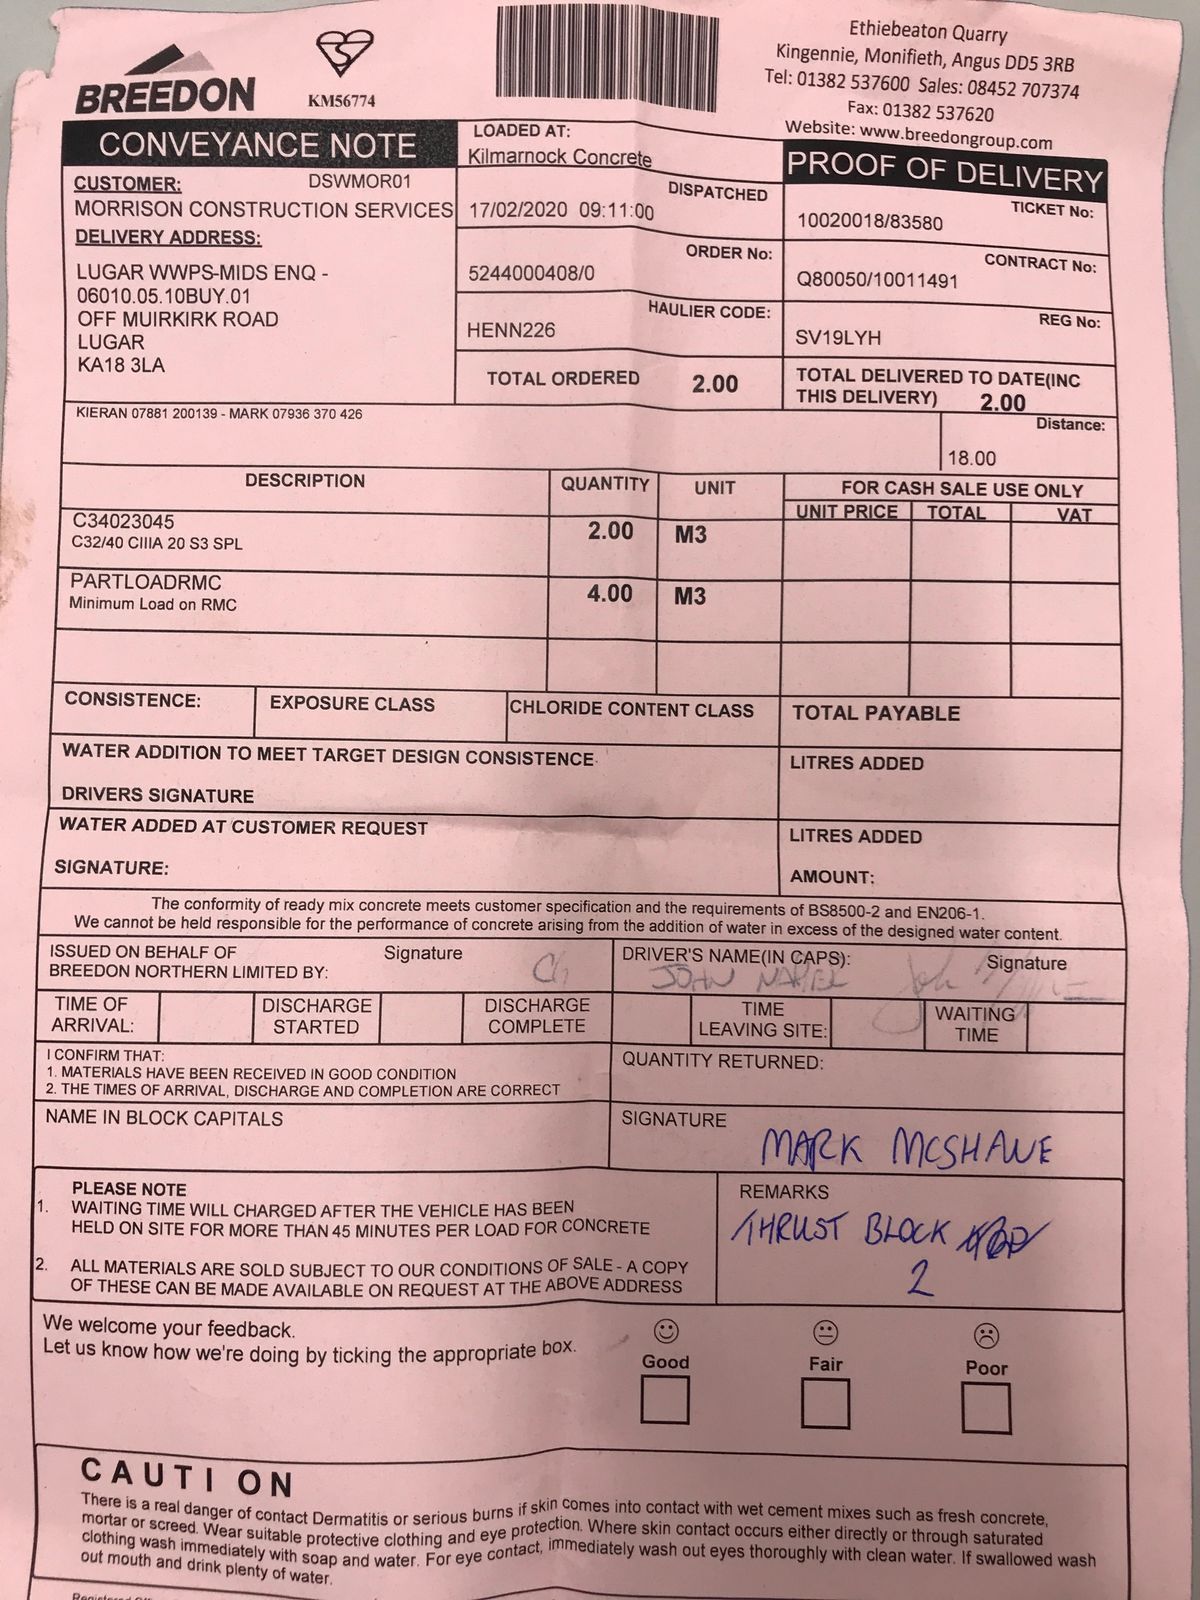 BREEDON
KM56774
Ethiebeaton Quarry
Kingennie, Monifieth, Angus DD5 3RB
Tel: 01382 537600 Sales: 08452 707374
Fax: 01382 537620
Website: www.breedongroup.com
CONVEYANCE NOTE
LOADED AT:
Kilmarnock Concrete
PROOF OF DELIVERY
CUSTOMER: DSWMOR01
MORRISON CONSTRUCTION SERVICES
DISPATCHED
17/02/2020 09:11:00
TICKET No:
10020018/83580
DELIVERY ADDRESS:
LUGAR WWPS-MIDS ENQ -
06010.05.10BUY.01
OFF MUIRKIRK ROAD
LUGAR
KA18 3LA
ORDER No:
5244000408/0
CONTRACT No:
Q80050/10011491
HAULIER CODE:
HENN226
REG No:
SV19LYH
TOTAL ORDERED 2.00
TOTAL DELIVERED TO DATE(INC
THIS DELIVERY) 2.00
KIERAN 07881 200139 - MARK 07936 370 426
Distance:
18.00
DESCRIPTION QUANTITY UNIT FOR CASH SALE USE ONLY
UNIT PRICE TOTAL VAT
C34023045 2.00 M3
C32/40 CIIIA 20 S3 SPL
PARTLOADRMC 4.00 M3
Minimum Load on RMC
CONSISTENCE: EXPOSURE CLASS CHLORIDE CONTENT CLASS TOTAL PAYABLE
WATER ADDITION TO MEET TARGET DESIGN CONSISTENCE LITRES ADDED
DRIVERS SIGNATURE
WATER ADDED AT CUSTOMER REQUEST LITRES ADDED
SIGNATURE: AMOUNT:
The conformity of ready mix concrete meets customer specification and the requirements of BS8500-2 and EN206-1.
We cannot be held responsible for the performance of concrete arising from the addition of water in excess of the designed water content.
ISSUED ON BEHALF OF Signature
BREEDON NORTHERN LIMITED BY:
DRIVER'S NAME(IN CAPS): Signature
JOHN
TIME OF
ARRIVAL:
DISCHARGE
STARTED
DISCHARGE
COMPLETE
TIME
LEAVING SITE:
WAITING
TIME
I CONFIRM THAT:
1. MATERIALS HAVE BEEN RECEIVED IN GOOD CONDITION
2. THE TIMES OF ARRIVAL, DISCHARGE AND COMPLETION ARE CORRECT
QUANTITY RETURNED:
NAME IN BLOCK CAPITALS
SIGNATURE
MARK MCSHANE
PLEASE NOTE
1. WAITING TIME WILL CHARGED AFTER THE VEHICLE HAS BEEN
HELD ON SITE FOR MORE THAN 45 MINUTES PER LOAD FOR CONCRETE
2. ALL MATERIALS ARE SOLD SUBJECT TO OUR CONDITIONS OF SALE - A COPY
OF THESE CAN BE MADE AVAILABLE ON REQUEST AT THE ABOVE ADDRESS
REMARKS
THRUST BLOCK
2
We welcome your feedback.
Let us know how we're doing by ticking the appropriate box.
Good Fair Poor
CAUTION
There is a real danger of contact Dermatitis or serious burns if skin comes into contact with wet cement mixes such as fresh concrete,
mortar or screed. Wear suitable protective clothing and eye protection. Where skin contact occurs either directly or through saturated
clothing wash immediately with soap and water. For eye contact, immediately wash out eyes thoroughly with clean water. If swallowed wash
out mouth and drink plenty of water.